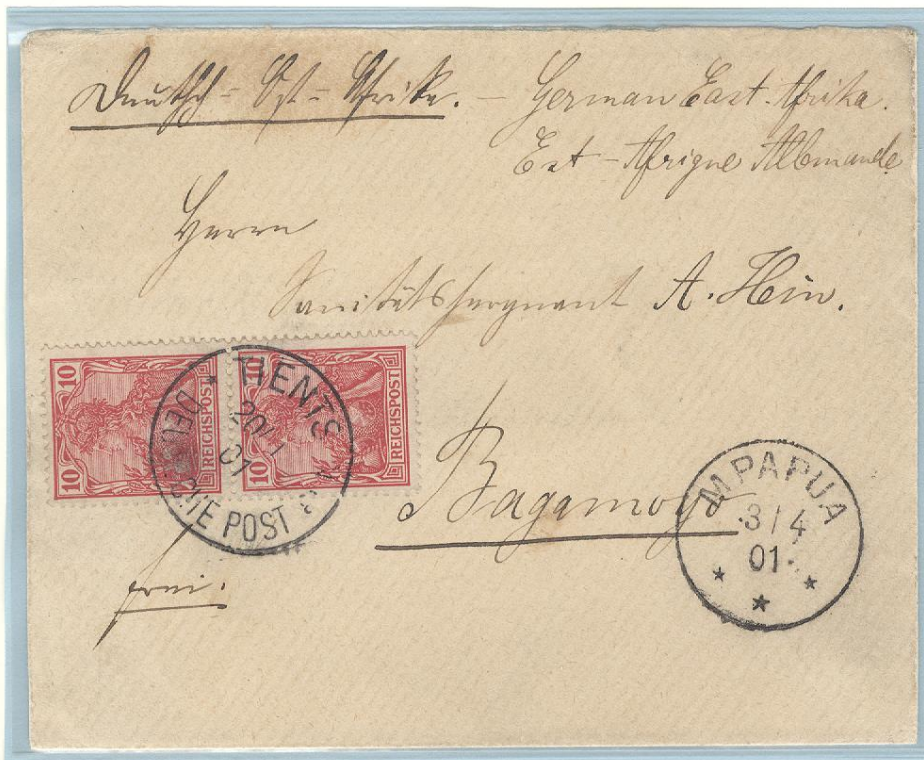 Deutsch = Ost = Afrika. – German East-Afrika.
Est-Afrique Allemande
Herrn
Sanitätssergeant A. Hein.
10 10 REICHSPOST
10 10 REICHSPOST
TIENTS
20/1
01
DEUTSCHE POST
Bagamoyo
frei.
MPAPUA
3/4
01